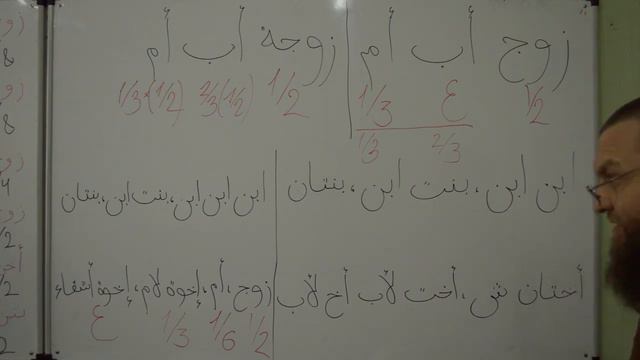 زوج أب أم
1/2 ع 1/3
2/3 1/3
زوجة أب أم
1/2 2/3(1/2) 1/3(1/2)
ابن ابن، بنت ابن، بنتان
ابن ابن ابن، بنت ابن، بنتان
أختان ش، أخت لأب أخ لأب
زوج، أم، إخوة لام، إخوة أشقاء
1/2 1/6 1/3 ع